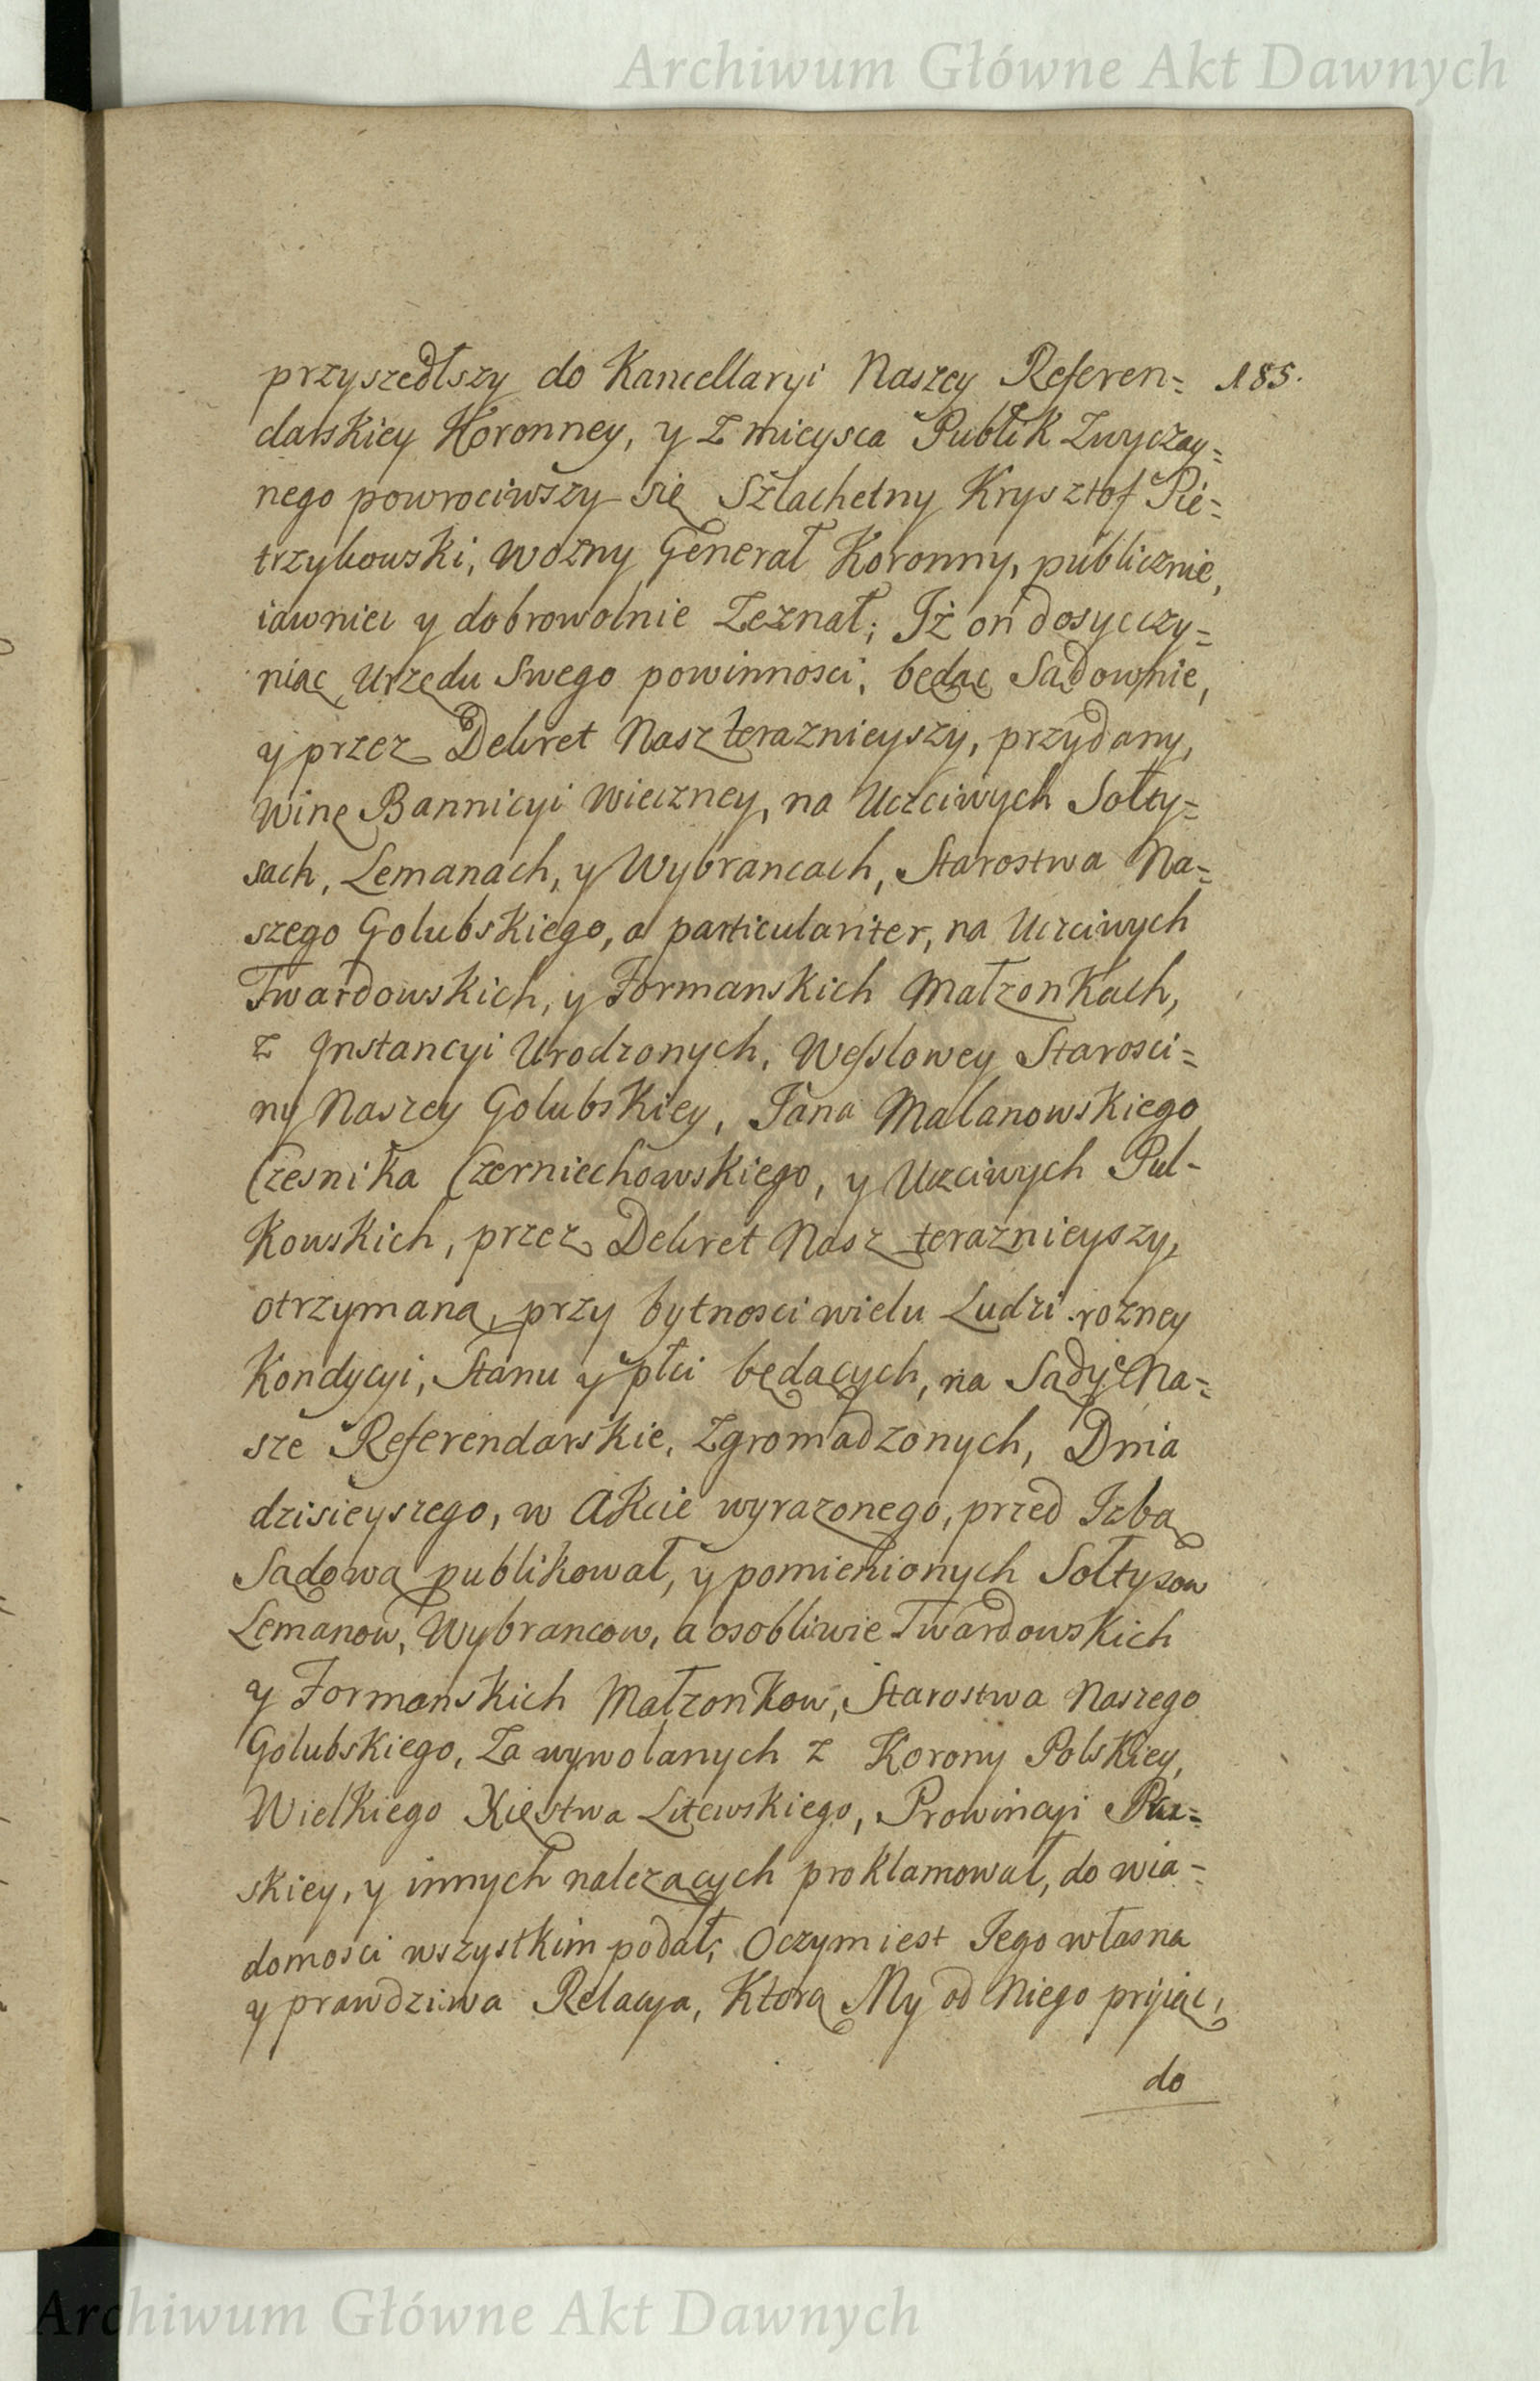 Archiwum Główne Akt Dawnych
przyszedłszy do Kancellaryi Naszey Referen= 185.
darskiey Koronney, y z mieysca Publik Zwyczay=
nego powrociwszy się Szlachetny Krysztof Pie=
trzykowski, Wozny Generał Koronny, publicznie,
iawnie y dobrowolnie Zeznał; Iż on dosyc czy=
niąc Urzędu Swego powinnosci, będąc Sądownie,
y przez Dekret Nasz teraznieyszy, przydany,
Winę Bannicyi Wieczney, na Uczciwych Sołty=
sach, Lemanach, y Wybrancach, Starostwa Na=
szego Golubskiego, a particulariter, na Uczciwych
Twardowskich, y Formanskich Małzonkach,
z Instancyi Urodzonych, Wesslowey Starosci=
ny Naszey Golubskiey, Jana Malanowskiego
Czesnika Czerniechowskiego, y Uczciwych Pul-
kowskich, przez Dekret Nasz terazнieyszy,
otrzymaną, przy bytnosci wielu Ludzi rozney
Kondycyi, Stanu y płci będących, na Sądy Na=
sze Referendarskie, Zgromadzonych, Dnia
dzisieyszego, w Akcie wyrazonego, przed Izbą
Sądową publikował, y pomienionych Sołtysow
Lemanow, Wybrancow, a osobliwie Twardowskich
y Formanskich Małzonkow, Starostwa Naszego
Golubskiego, Za wywolanych z Korony Polskiey,
Wielkiego Xięstwa Litewskiego, Prowincyi Pru=
skiey, y innych nalezących proklamował, do wia=
domosci wszystkim podał; Oczym iest Jego własna
y prawdziwa Relacya, Ktorą My od Niego prijąc,
do
Archiwum Główne Akt Dawnych